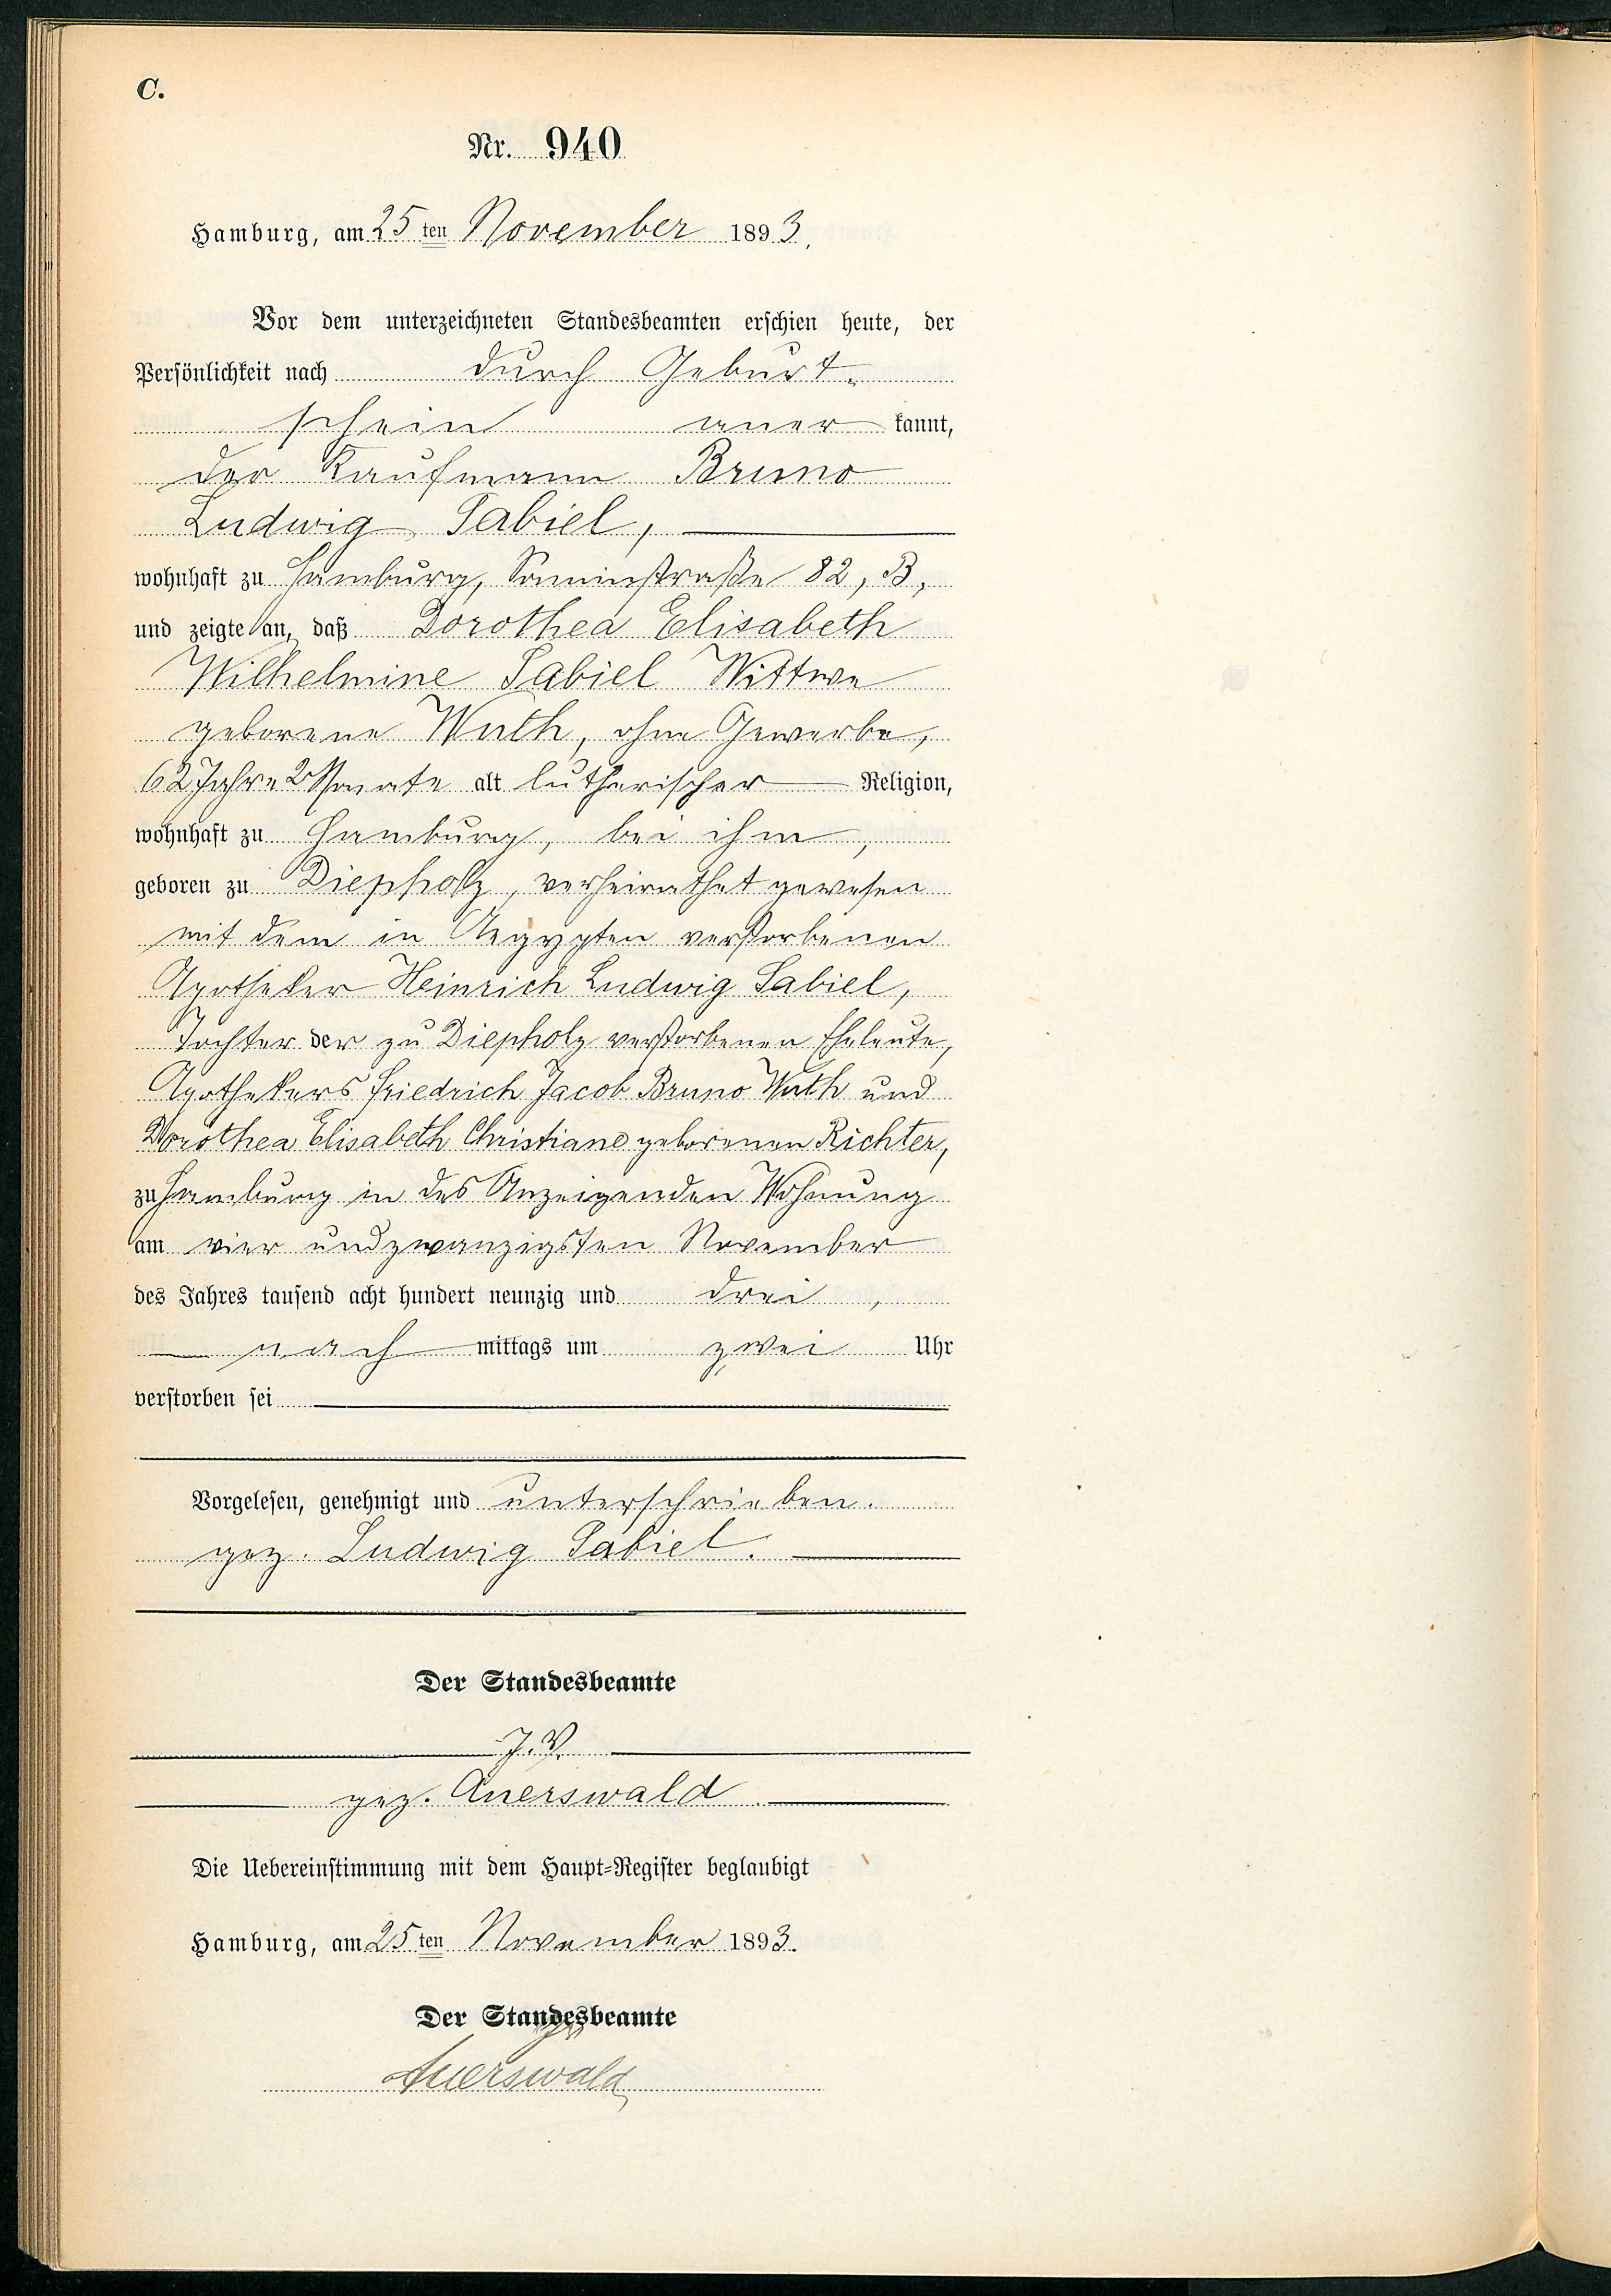 C.
Nr. 940
Hamburg, am 25 ten November 1893.
Vor dem unterzeichneten Standesbeamten erschien heute, der
Persönlichkeit nach durch Geburt-
schein aner kannt,
der Kaufmann Bruno
Ludwig Sabiel,
wohnhaft zu Hamburg, 82, B,
und zeigte an, daß Dorothea Elisabeth
Wilhelmine Sabiel Wittwe
geborene Wuth, ohne Gewerbe,
62 Jahre 2 Monate alt lutherischer Religion,
wohnhaft zu Hamburg, bei ihm,
geboren zu Diepholz, verheirathet gewesen
mit dem in Aegypten verstorbenen
Apotheker Heinrich Ludwig Sabiel,
Tochter der zu Diepholz verstorbenen Eheleute,
Apothekers Friedrich Jacob Bruno Wuth und
Dorothea Elisabeth Christiane geborenen Richter,
zu Hamburg in des Anzeigenden Wohnung
am vier undzwanzigsten November
des Jahres tausend acht hundert neunzig und drei,
nach mittags um zwei Uhr
verstorben sei
Vorgelesen, genehmigt und unterschrieben.
gez. Ludwig Sabiel.
Der Standesbeamte
J. V.
gez. Auerswald
Die Uebereinstimmung mit dem Haupt-Register beglaubigt
Hamburg, am 25 ten November 1893.
Der Standesbeamte
Auerswald